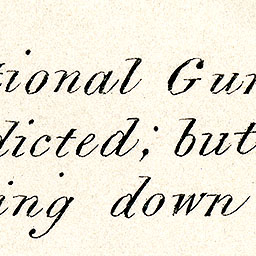 tional Gun
dicted; but
ing down